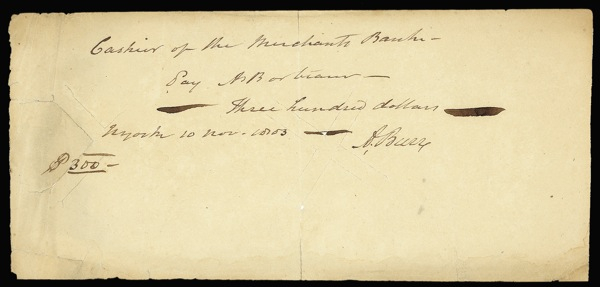 Cashier of the Merchants Bank -
Pay AB or bearer -
Three hundred dollars
NYork 10 Nov. 1803
A. Burr
$ 300 -